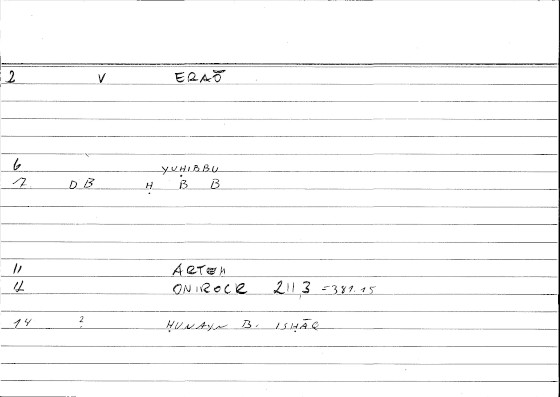 2 V ERAŌ
6 YUḤIBBU
7 DB Ḥ B B
11 ARTEH
12 ONIROCR 211,3 =387.15
14 ? ḤUNAYN B. ISḤĀQ